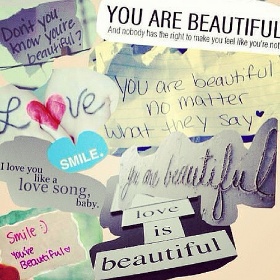 Don't you
know you're
beautiful?
YOU ARE BEAUTIFUL
And nobody has the right to make you feel like you're not
you are beautiful
no matter
what they say
Love
SMILE.
I love you
like a
love song,
baby.
you are beautiful
love
is
beautiful
Smile :)
You're
Beautiful